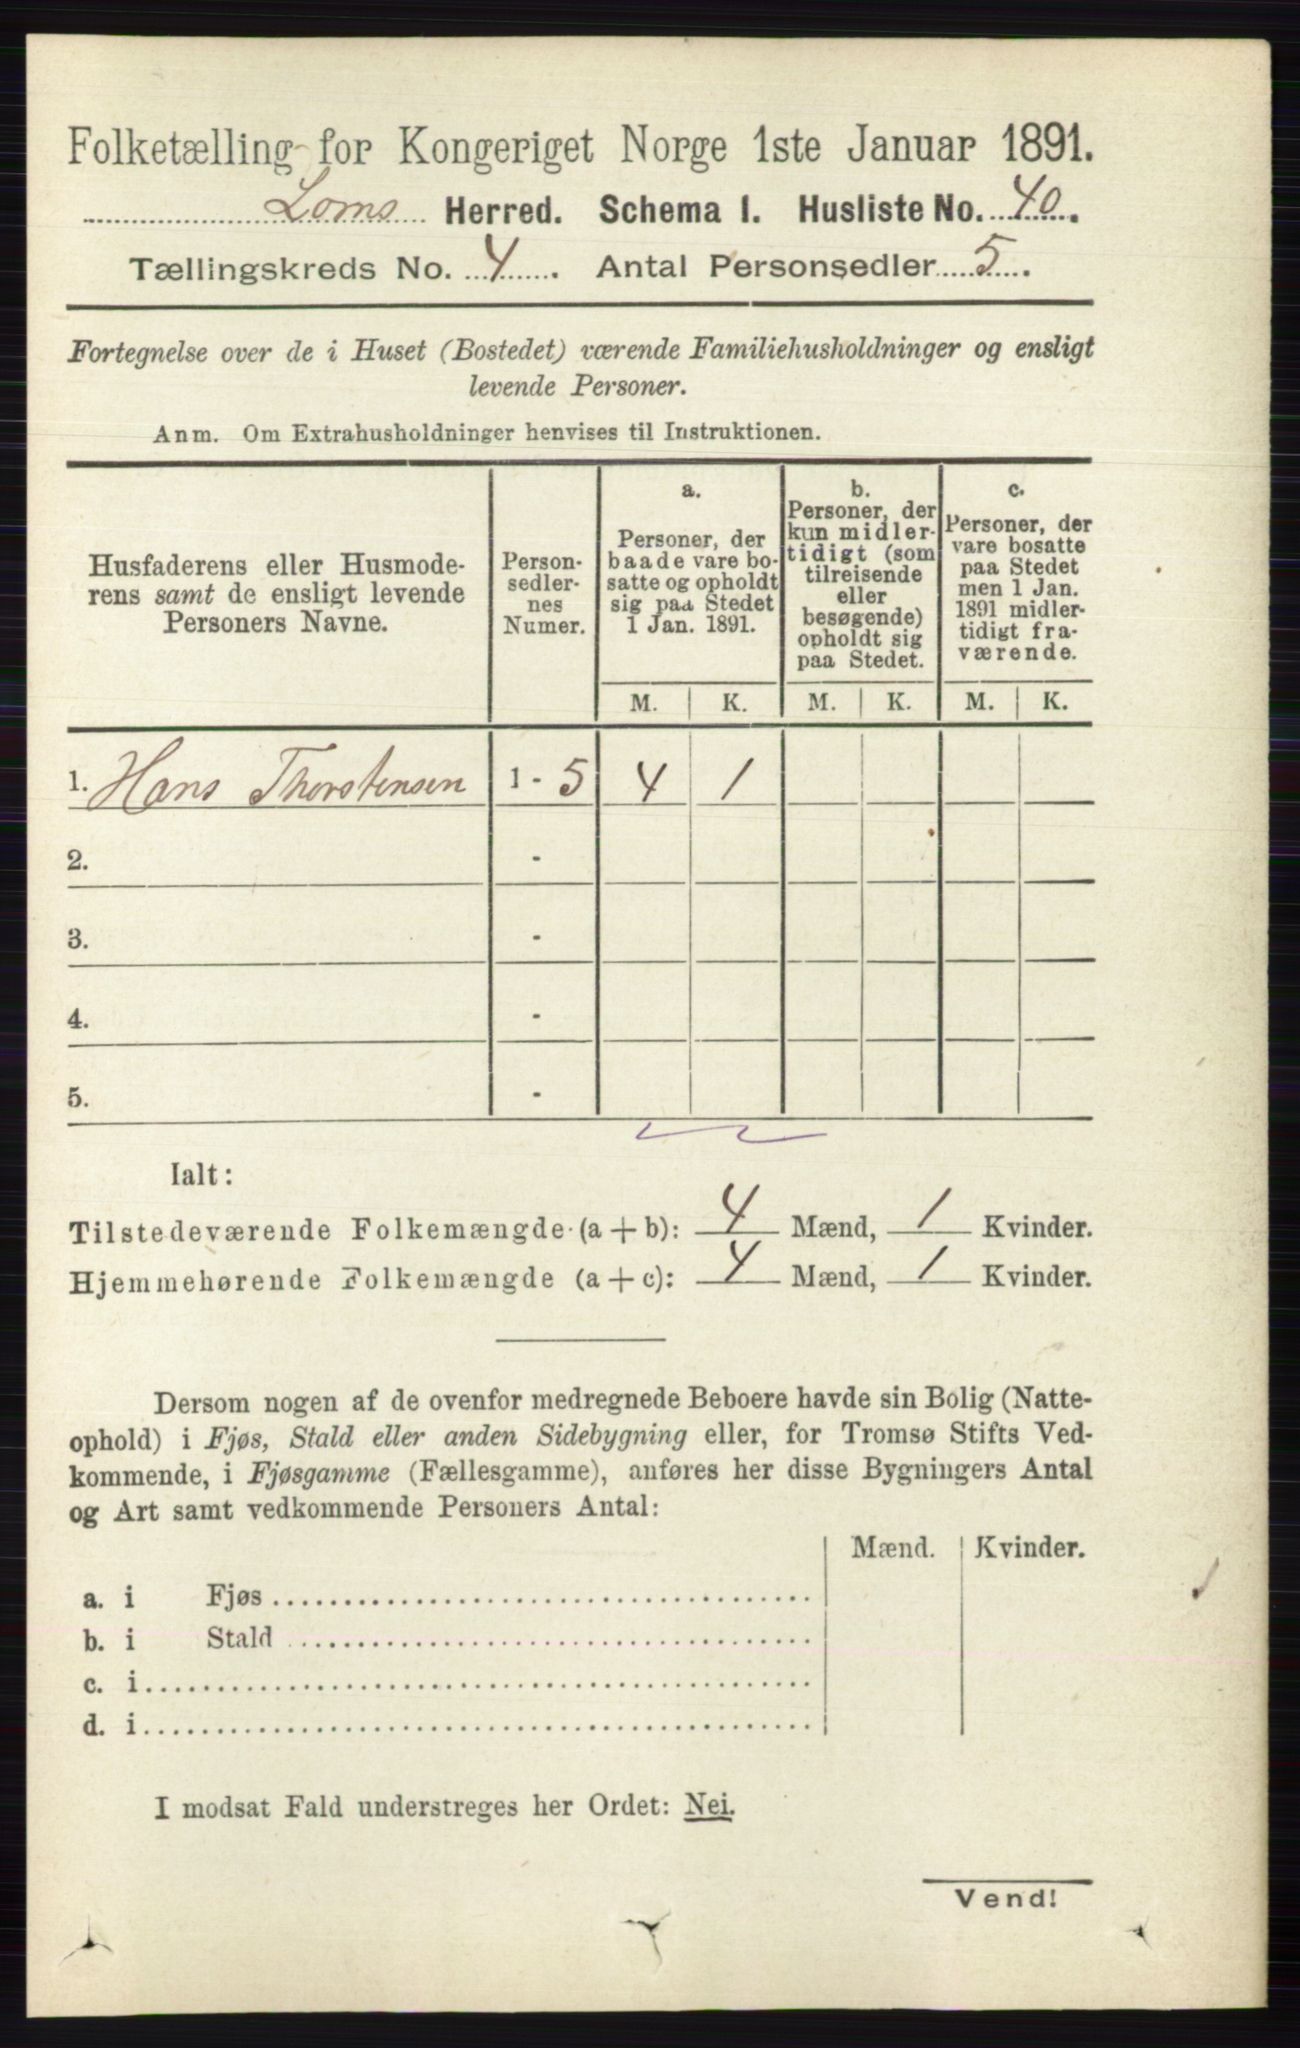 Folketælling for Kongeriget Norge 1ste Januar 1891.
Loms Herred. Schema I. Husliste No. 40.
Tællingskreds No. 4. Antal Personsedler 5.
Fortegnelse over de i Huset (Bostedet) værende Familiehusholdninger og ensligt
levende Personer.
Anm. Om Extrahusholdninger henvises til Instruktionen.
Husfaderens eller Husmode-
rens samt de ensligt levende
Personers Navne.
Person-
sedler-
nes
Numer.
a.
Personer, der
baade vare bo-
satte og opholdt
sig paa Stedet
1 Jan. 1891.
b.
Personer, der
kun midler-
tidigt (som
tilreisende
eller
besøgende)
opholdt sig
paa Stedet.
c.
Personer, der
vare bosatte
paa Stedet
men 1 Jan.
1891 midler-
tidigt fra-
værende.
M. K. M. K. M. K.
1. Hans Thorstensen 1 - 5 4 1
2. -
3. -
4. -
5. -
Ialt:
Tilstedeværende Folkemængde (a + b): 4 Mænd, 1 Kvinder.
Hjemmehørende Folkemængde (a + c): 4 Mænd, 1 Kvinder.
Dersom nogen af de ovenfor medregnede Beboere havde sin Bolig (Natte-
ophold) i Fjøs, Stald eller anden Sidebygning eller, for Tromsø Stifts Ved-
kommende, i Fjøsgamme (Fællesgamme), anføres her disse Bygningers Antal
og Art samt vedkommende Personers Antal:
Mænd. Kvinder.
a. i Fjøs
b. i Stald
c. i
d. i
I modsat Fald understreges her Ordet: Nei.
Vend!